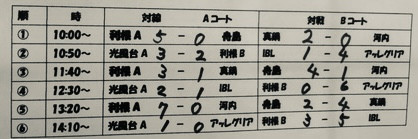 順 時 対戦 Aコート 対戦 Bコート
① 10:00〜 利根A 5 - 0 舟島 真鍋 2 - 0 河内
② 10:50〜 光風台A 3 - 2 利根B IBL 1 - 4 アッレグリア
③ 11:40〜 利根A 3 - 1 真鍋 舟島 4 - 1 河内
④ 12:30〜 光風台A 2 - 1 IBL 利根B 0 - 6 アッレグリア
⑤ 13:20〜 利根A 7 - 0 河内 舟島 2 - 4 真鍋
⑥ 14:10〜 光風台A 1 - 0 アッレグリア 利根B 3 - 5 IBL